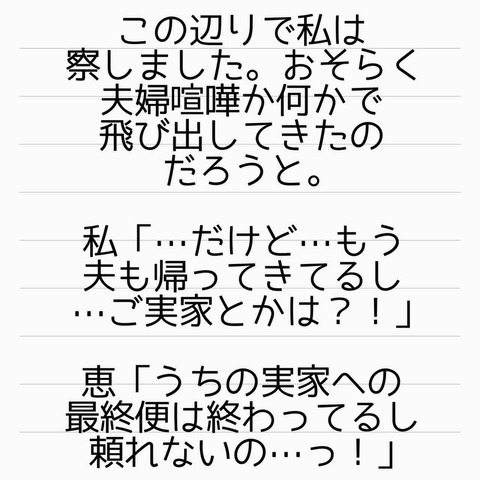 この辺りで私は
察しました。おそらく
夫婦喧嘩か何かで
飛び出してきたの
だろうと。
私「…だけど…もう
夫も帰ってきてるし
…ご実家とかは？！」
恵「うちの実家への
最終便は終わってるし
頼れないの…っ！」